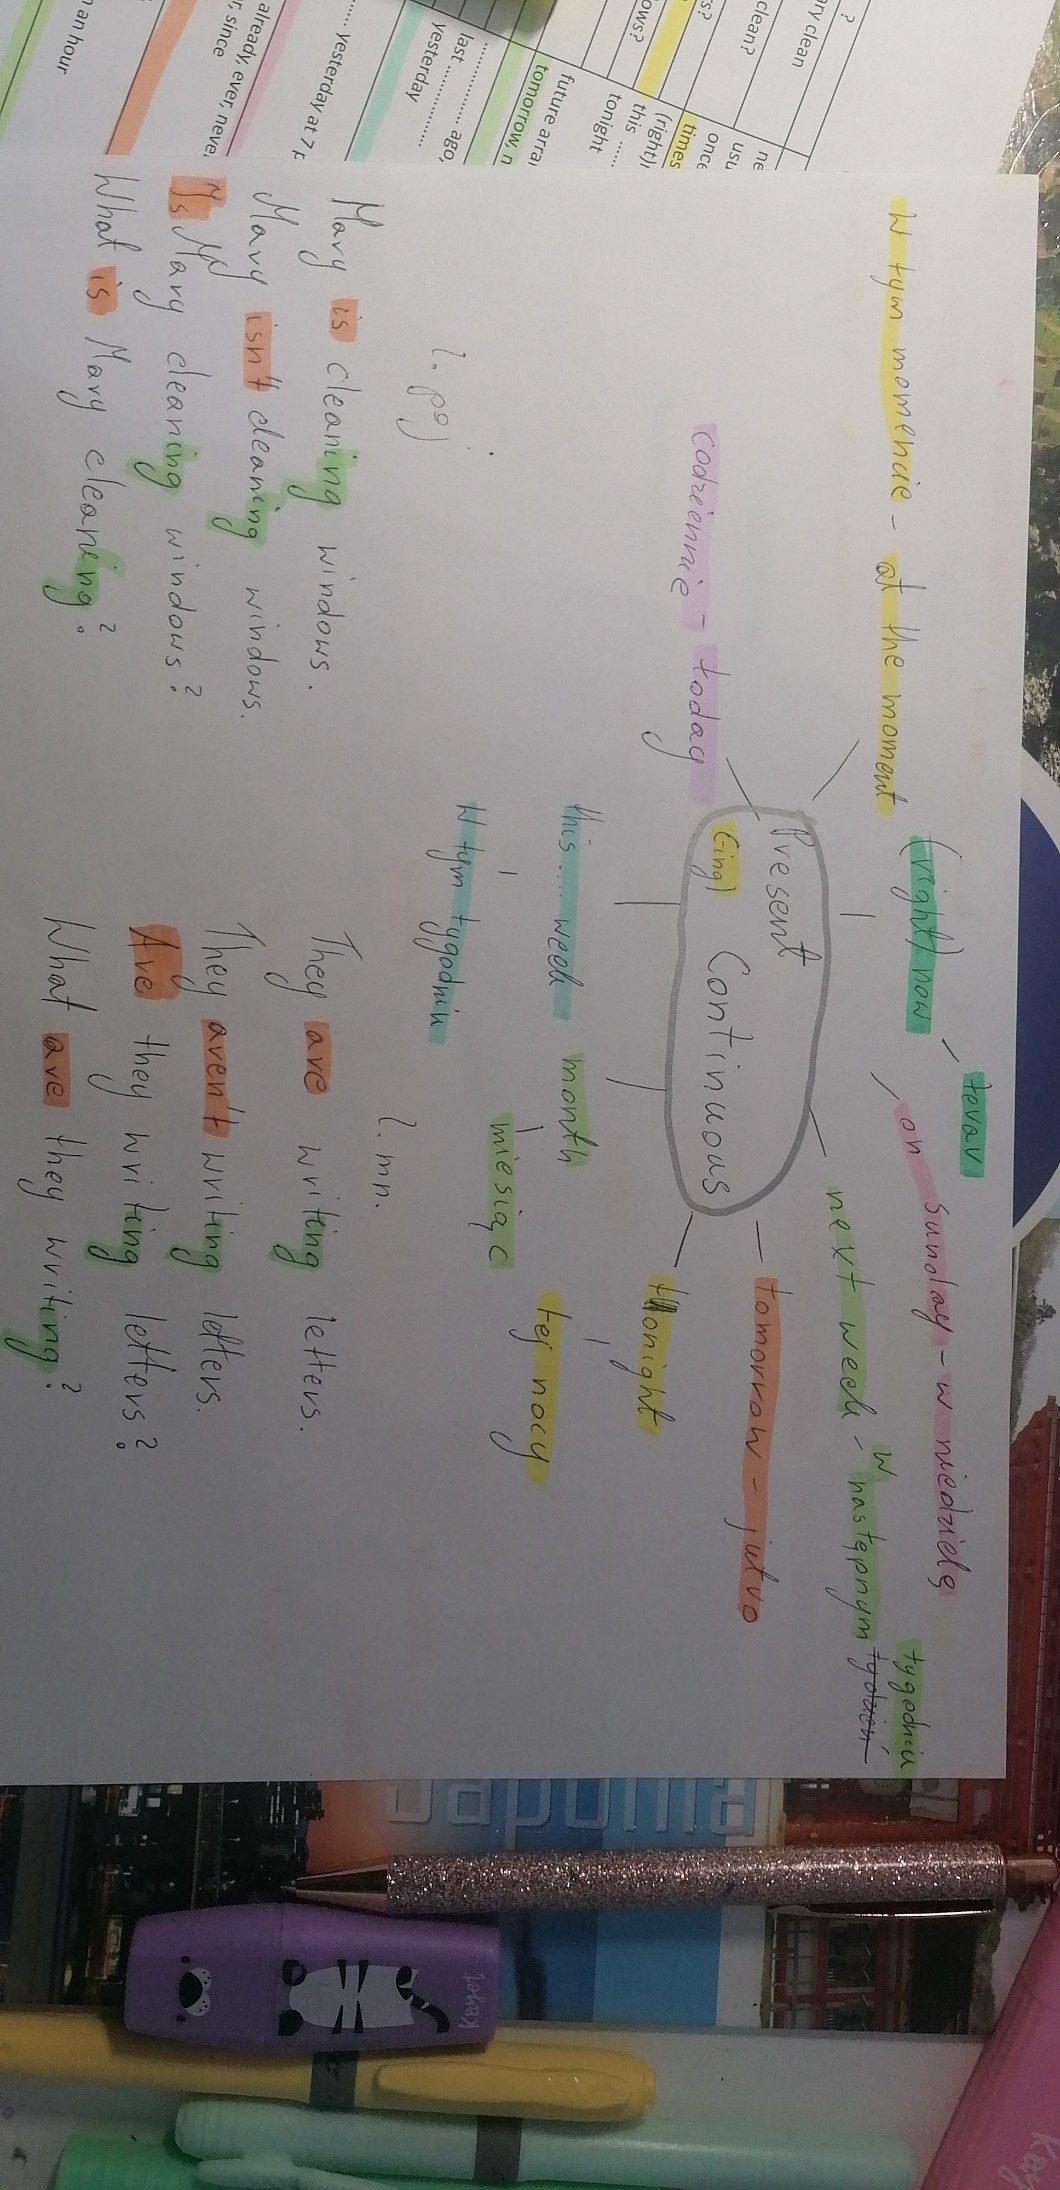 ? 
ry clean
clean?
s?
ows?
ne
usu
once
times
(right)
this .....
tonight
future arra
tomorrow, n
last ............... ago,
yesterday
..... yesterday at 7 p
already, ever, neve
r, since
an hour
w tym momencie - at the moment
(right) now
teraz
on sunday - w niedzielę
next week - w następnym tydzień tygodniu
codziennie - today
Present
(ing) Continuous
tomorrow - jutro
tonight
tej nocy
this..... week
w tym tygodniu
month
miesiąc
l. poj.
Mary is cleaning windows.
Mary isn't cleaning windows.
Is Mary cleaning windows?
What is Mary cleaning?
l. mn.
They are writing letters.
They aren't writing letters.
Are they writing letters?
What are they writing?
Japonia
Kayet
Kay